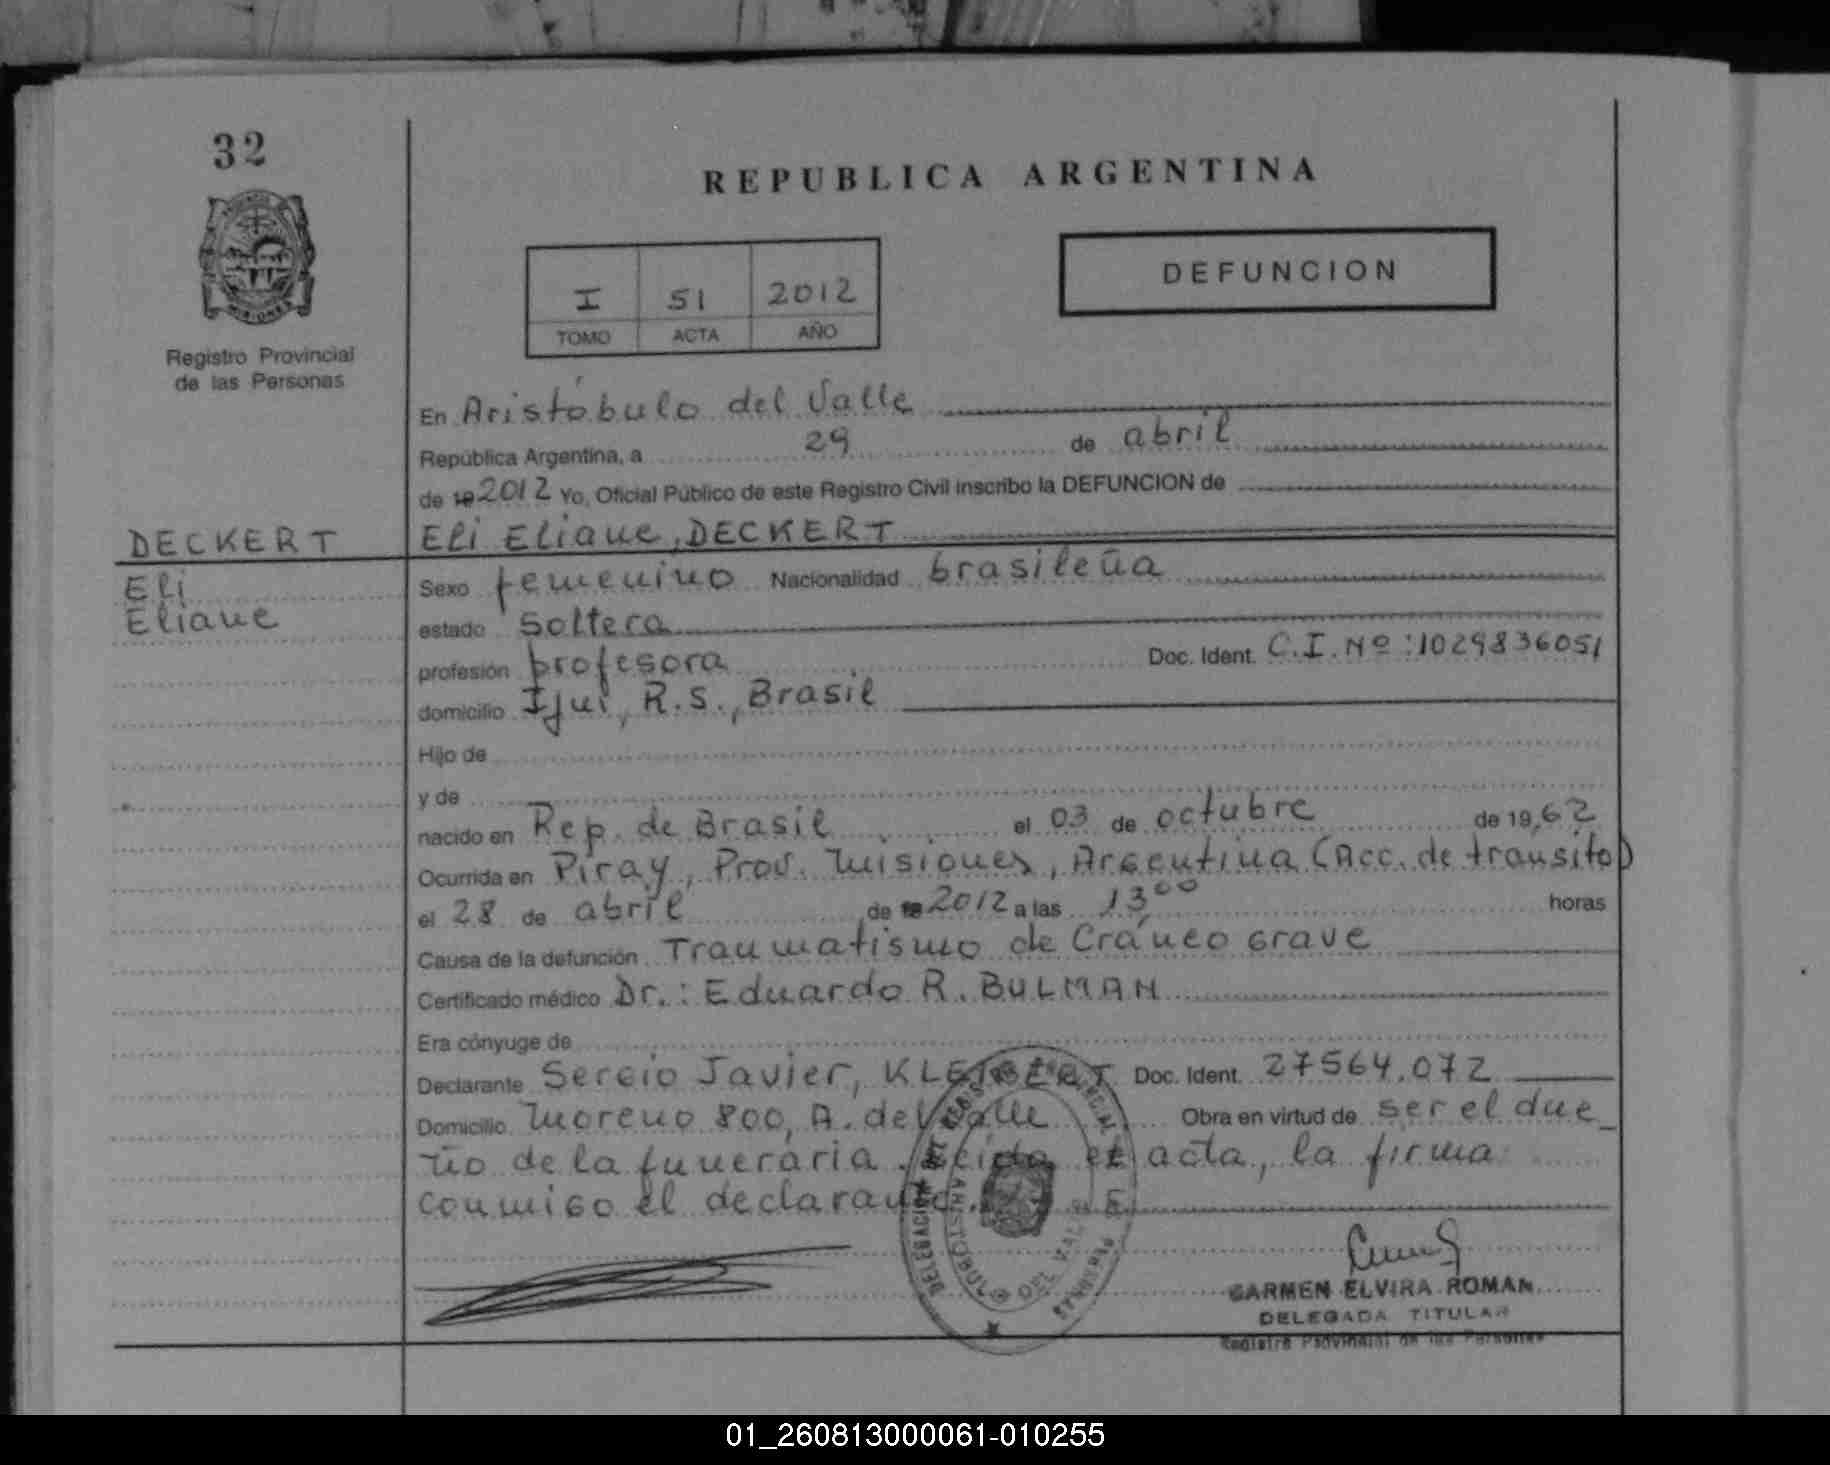 32
REPUBLICA ARGENTINA
MISIONES
Registro Provincial
de las Personas
I 51 2012
TOMO ACTA AÑO
DEFUNCION
En Aristóbulo del Valle
República Argentina, a 29 de abril
de 19 2012 Yo, Oficial Público de este Registro Civil inscribo la DEFUNCION de
DECKERT Eli Eliane, DECKERT
Eli
Eliane
Sexo femenino Nacionalidad brasileña
estado Soltera
profesión profesora Doc. Ident. C.I. Nº: 1029836051
domicilio Ijui, R.S., Brasil
Hijo de
y de
nacido en Rep. de Brasil el 03 de octubre de 19 62
Ocurrida en Piray, Prov. Misiones, Argentina (Acc. de transito)
el 28 de abril de 19 2012 a las 13,00 horas
Causa de la defunción Traumatismo de Cráneo Grave
Certificado médico Dr.: Eduardo R. BULMAN
Era cónyuge de
Declarante Sergio Javier, KLEIBERT Doc. Ident. 27564.072
Domicilio Moreno 800, A. del Valle Obra en virtud de ser el due_
ño de la funeraria. Leída el acta, la firma
conmigo el declarante.
DELEGACION DEL REGISTRO PROVINCIAL
PERSONAS
ARISTOBULO DEL VALLE
CARMEN ELVIRA ROMAN
DELEGADA TITULAR
Registro Provincial de las Personas
01_260813000061-010255